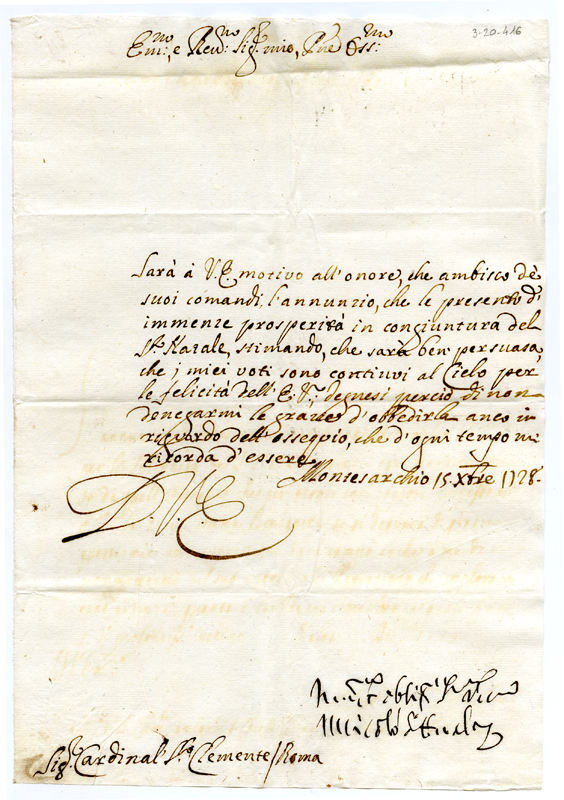 3-20-416
Em:mo, e Rev:mo Sig:re mio, Pne Oss:mo
Sarà à V.E. motivo all'onore, che ambisco de
suoi comandi, l'annunzio, che le presento d'
immenze prosperità in congiuntura del
S.to Natale, stimando, che sarà ben persuasa,
che i miei voti sono continui al Cielo per
le felicità dell'E.V.; degnesi perciò di non
denegarmi le grazie d'obbedirla anco in
riguardo dell'ossequio, che d'ogni tempo mi
ricorda d'essere
Montesarchio 15. Xbre 1728.
D V E
Sig.r Cardinal S. Clemente / Roma